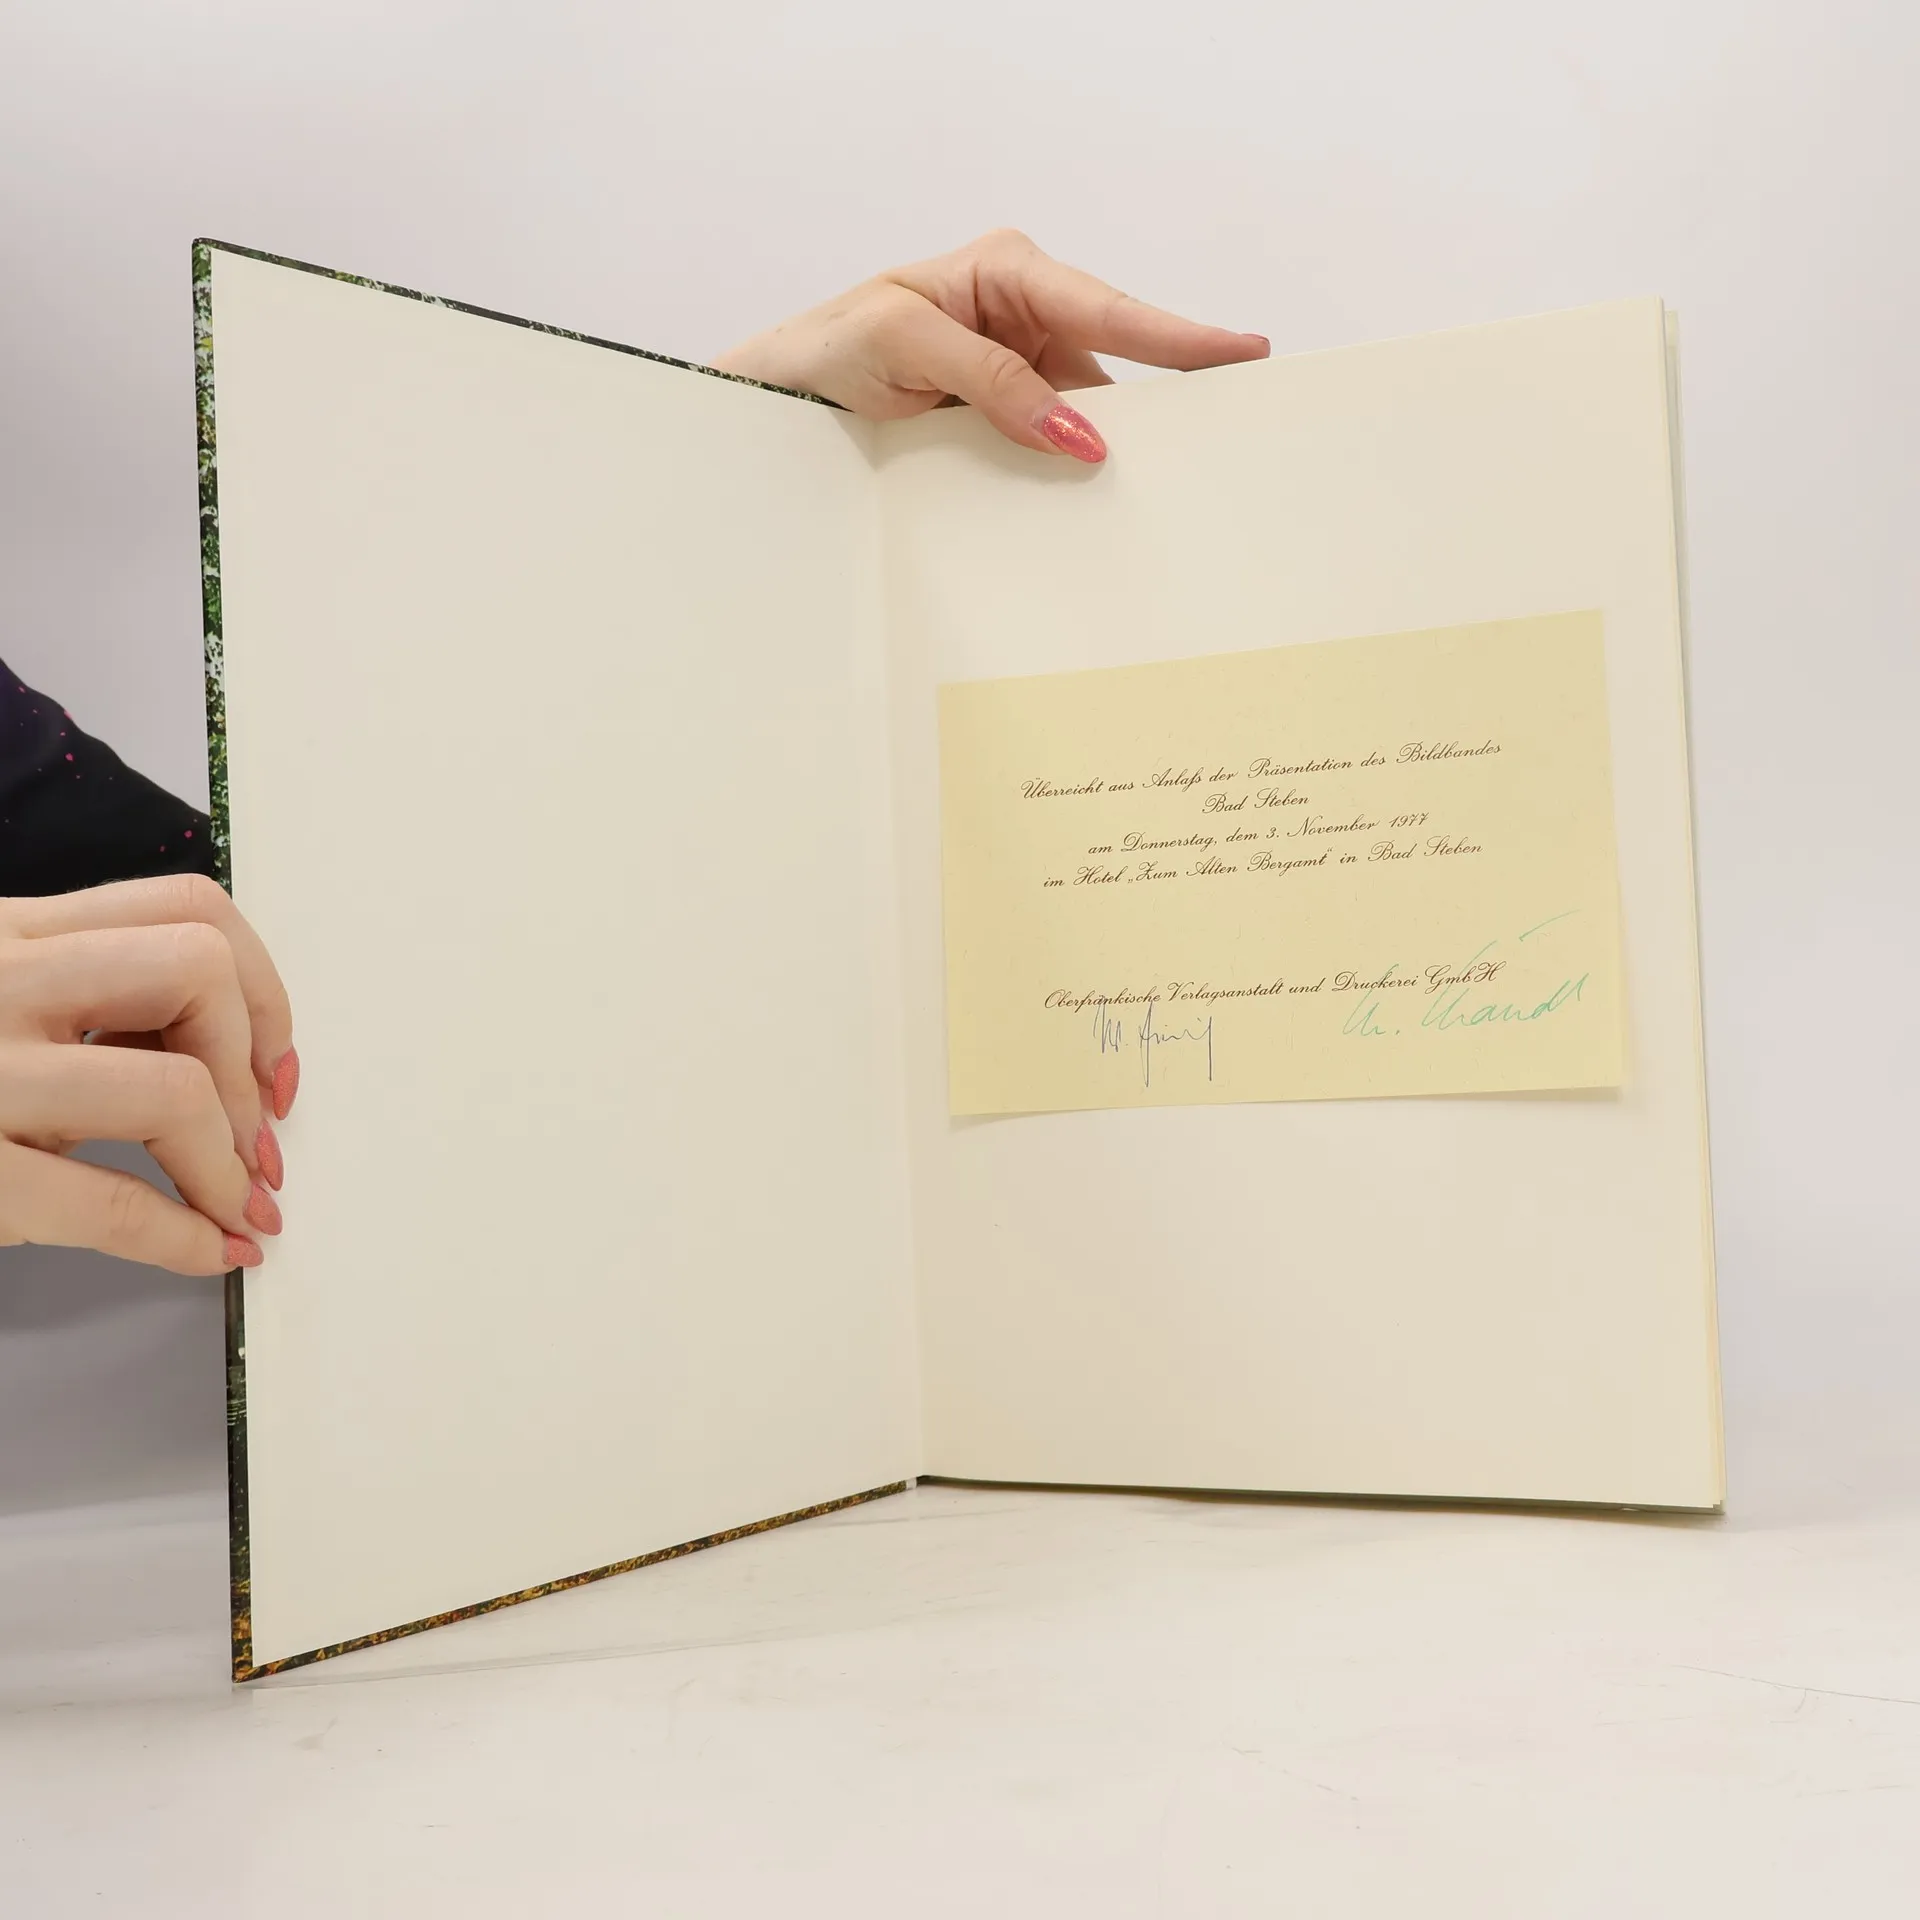 Überreicht aus Anlaß der Präsentation des Bildbandes
Bad Steben
am Donnerstag, dem 3. November 1977
im Hotel „Zum Alten Bergamt“ in Bad Steben
Oberfränkische Verlagsanstalt und Druckerei GmbH